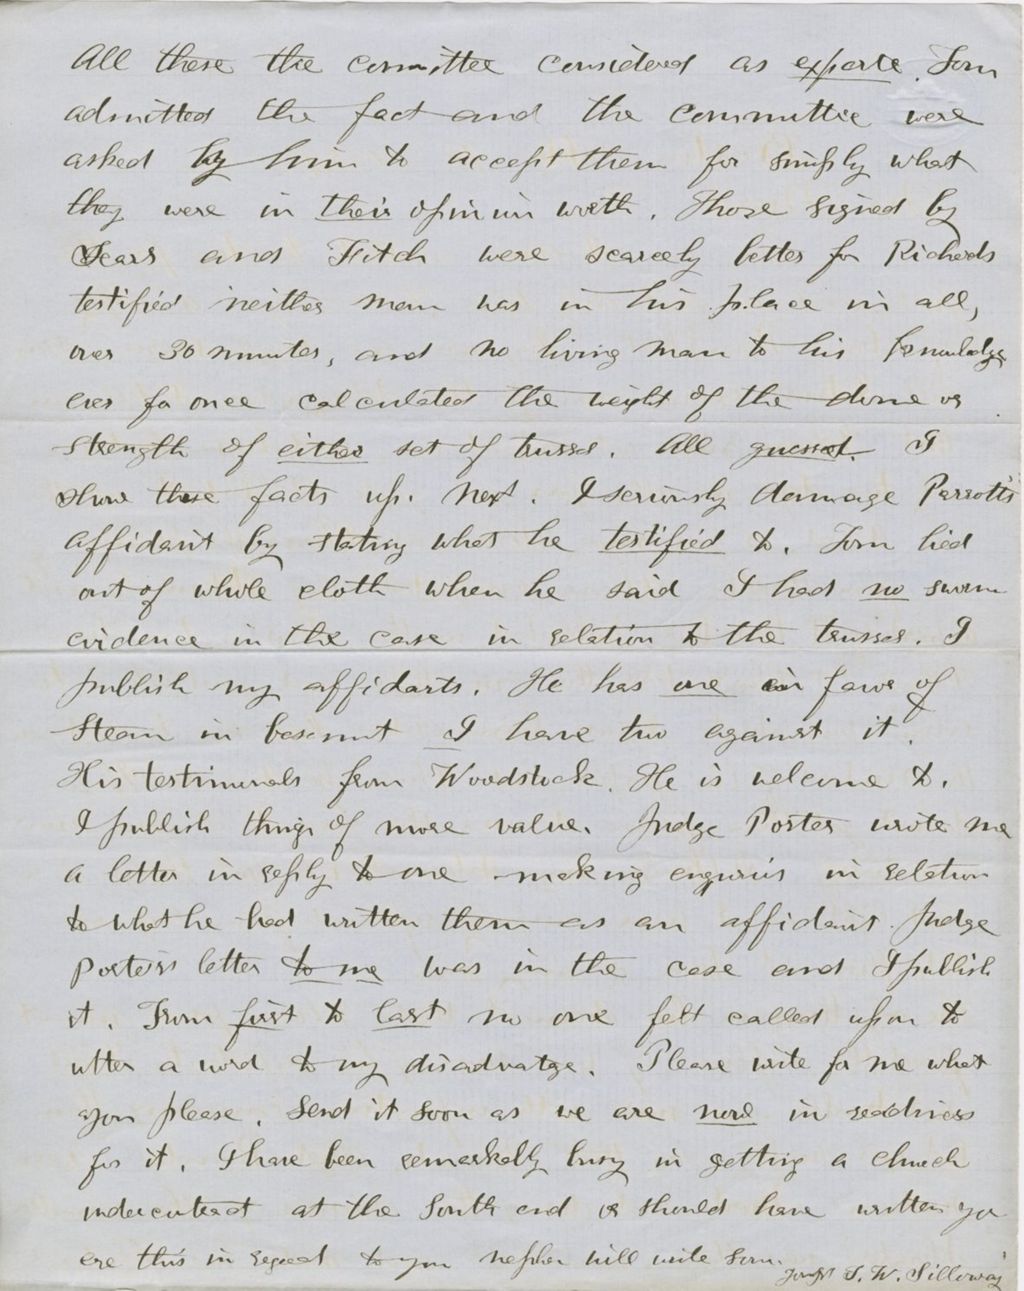 All these the committee considered as exparte. Tom
admitted the fact and the committee were
asked by him to accept them for simply what
they were in their opinion worth. Those signed by
Sears and Fitch were scarcely better for Richards
testified neither man was in his place in all,
over 30 minutes, and no living man to his knowledge
ever for once calculated the weight of the dome or
strength of either set of trusses. All guessed. I
show these facts up. Next. I seriously damage Parrott's
affidavit by stating what he testified to. Tom lied
out of whole cloth when he said I had no sworn
evidence in the case in relation to the trusses. I
publish my affidavits. He has one in favor of
steam in basement I have two against it.
His testimonials from Woodstock. He is welcome to.
I publish things of more value. Judge Porter wrote me
a letter in reply to one making enquiries in relation
to what he had written them as an affidavit. Judge
Porters letter to me was in the case and I publish
it. From first to last no one felt called upon to
utter a word to my disadvatge. Please write for me what
you please. Send it soon as we are now in readiness
for it. I have been remarkably busy in getting a church
undercontract at the South end or should have written you
ere this in regard to your nephew will write soon.
T. W. Silloway